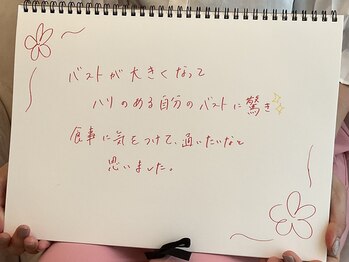 バストが大きくなって
ハリのある自分のバストに驚き✨
食事に気をつけて、通いたいなと
思いました。